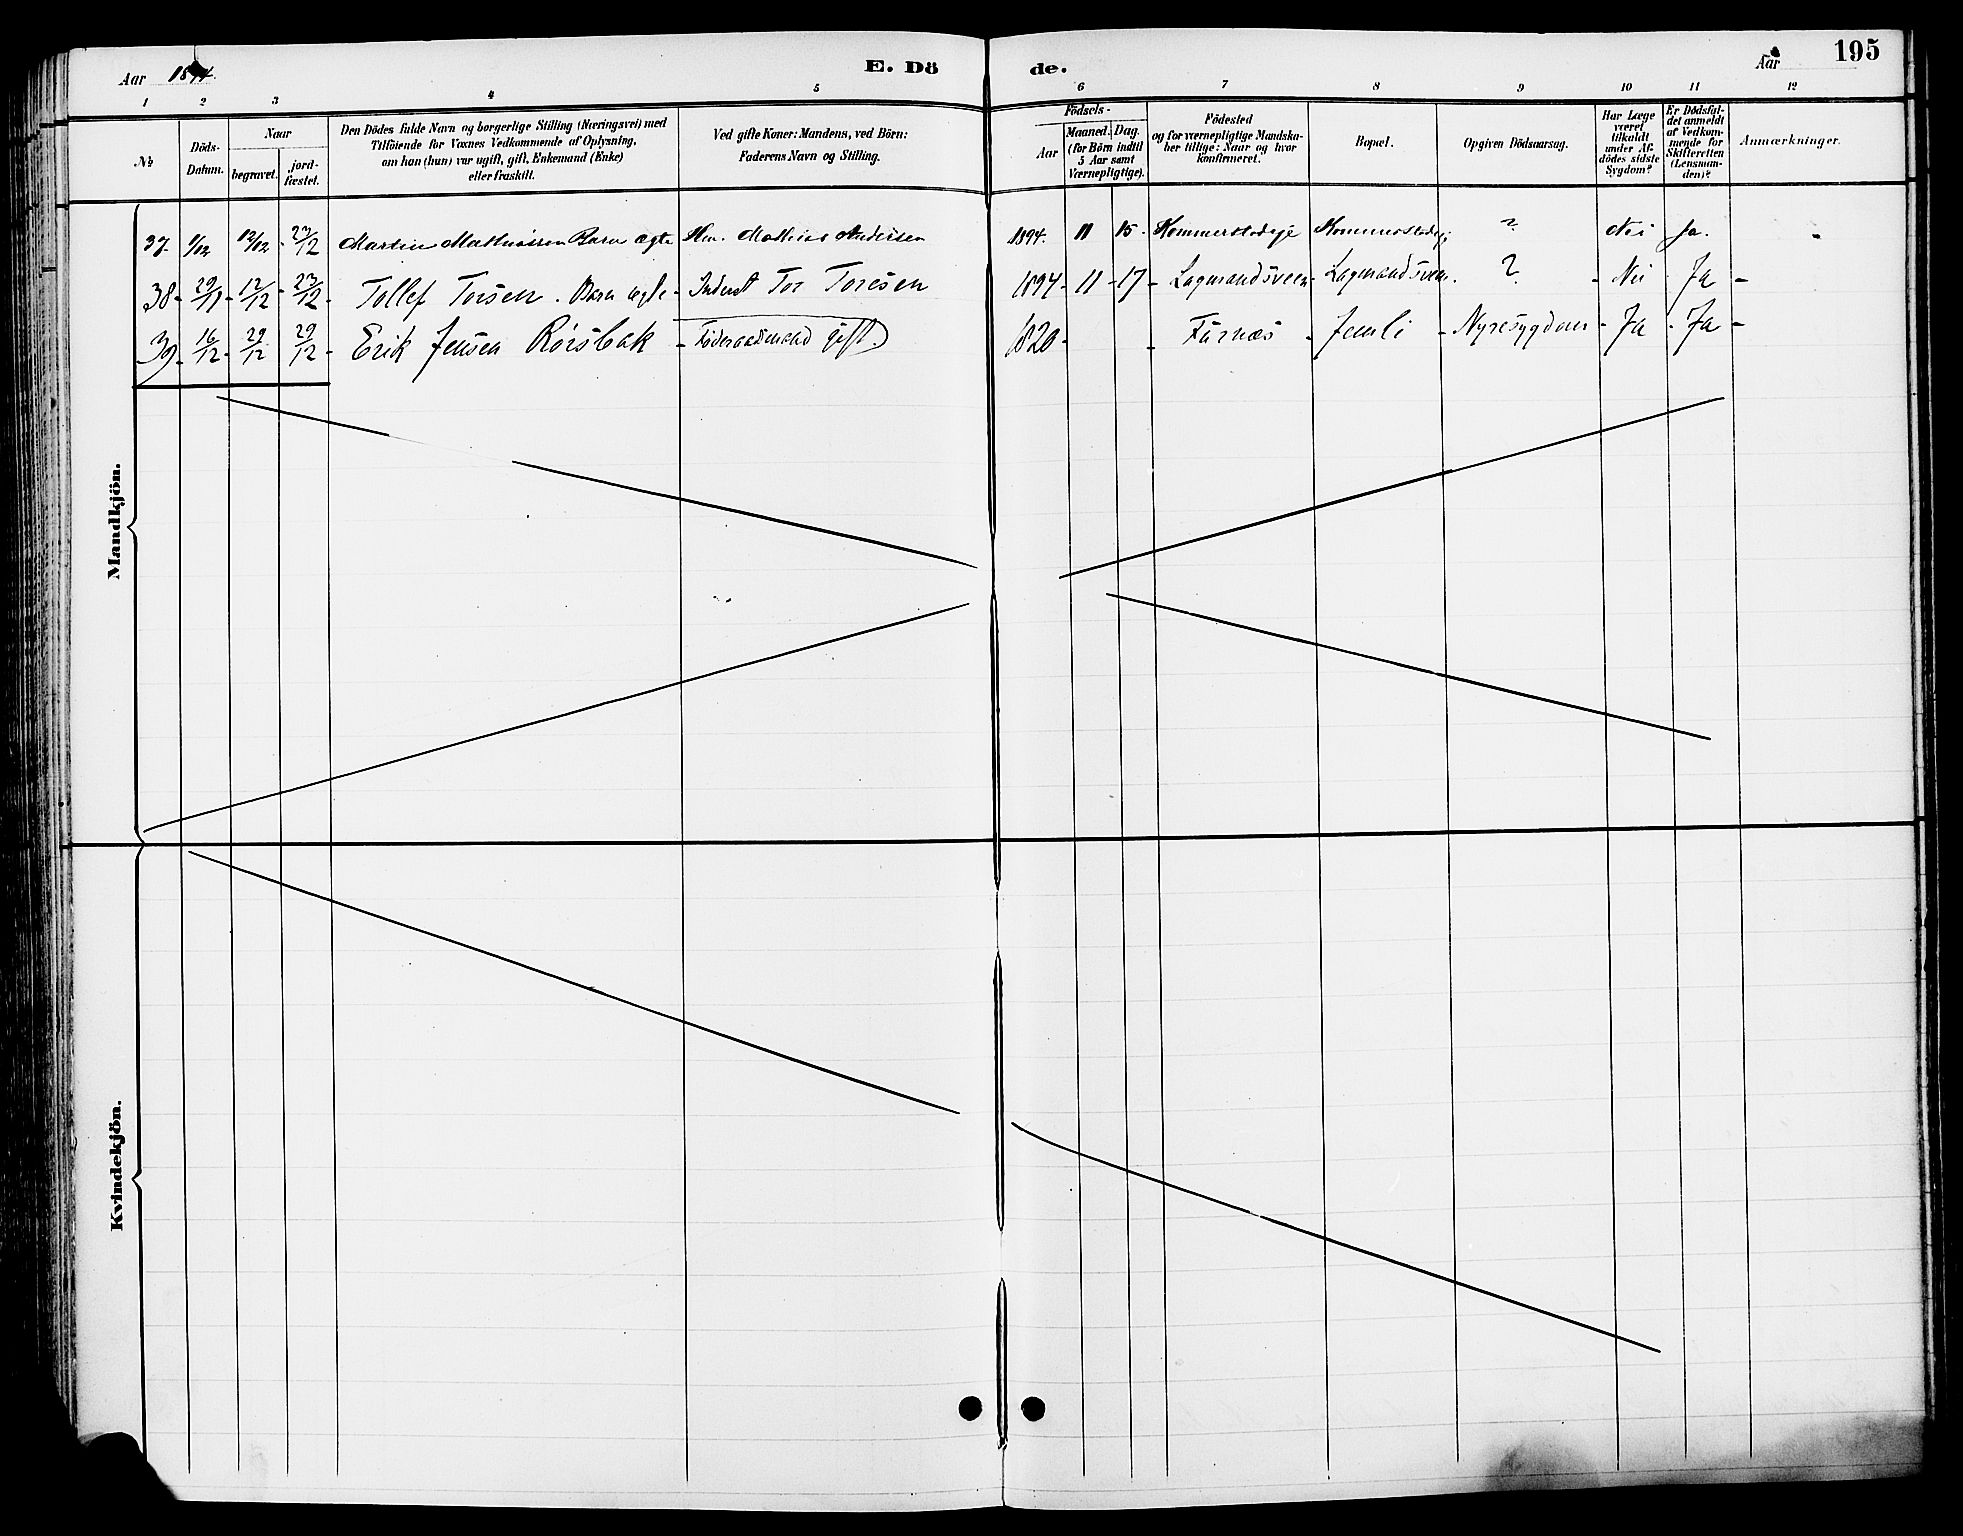 Aar 1894.
E. Dö
de.
Aar
195
1 2 3 4 5 6 7 8 9 10 11 12
№
Döds-
Datum.
Naar
begravet.
jord-
fæstet.
Den Dödes fulde Navn og borgerlige Stilling (Næringsvei) med
Tilföiende for Voxnes Vedkommende af Oplysning,
om han (hun) var ugift, gift, Enkemand (Enke)
eller fraskilt.
Ved gifte Koner: Mandens, ved Börn:
Faderens Navn og Stilling.
Födsels-
Aar
Maaned.
Dag.
(for Börn indtil
5 Aar samt
Værnepligtige).
Födested
og for værnepligtige Mandska-
ber tillige: Naar og hvor
konfirmeret.
Bopæl.
Opgiven Dödsaarsag.
Har Læge
været
tilkaldt
under Af-
dödes sidste
Sygdom?
Er Dødsfal-
det anmeldt
af Vedkom-
mende for
Skifteretten
(Lensman-
den)?
Anmærkninger.
37. 1/12 12/12 - 23/12 Martin Mathiassen Barn ægte Hm. Mathias Andersen 1894. 11 15 - Kommerstadeje Kommerstadeje ? Nei Ja. -
38 - 29/11 - 12/12 - 23/12 - Tollef Torsen . Barn ægte - Inderst Tor Toresen 1894 - 11 - 17 - Lagmandsveen - Lagmandsveen . ? - Nei . Ja -
39 - 16/12 - 29/12 29/12 - Erik Jensen Rörsbak - Föderaadsmand gift. 1820 - - Furnæs - Jemli - Nyresygdom - Ja . Ja -
Mandkjön.
Kvindekjön.